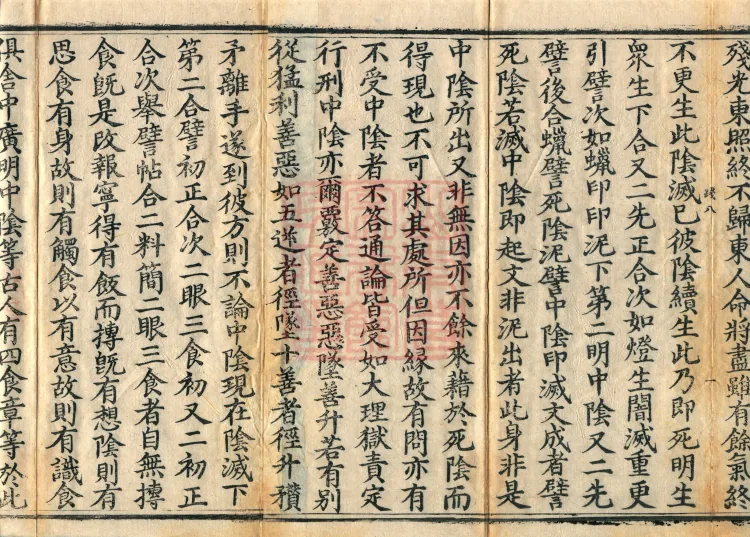 殘光東照終不歸東人命將盡雖有餘氣終
不更生此陰滅已彼陰續生此乃即死明生
衆生下合又二先正合次如燈生闇滅重更
引譬次如蠟印印泥下第二明中陰又二先
譬後合蠟譬死陰泥譬中陰印滅文成者譬
死陰若滅中陰即起文非泥出者此身非是
中陰所出又非無因亦不餘來藉於死陰而
得現也不可求其處所但因緣故有問亦有
不受中陰者不答通論皆受如大理獄責定
行刑中陰亦爾覈定善惡惡墜善升若有別
從猛利善惡如五逆者徑墜十善者徑升穳
矛離手遂到彼方則不論中陰現在陰滅下
第二合譬初正合次二眼三食初又二初正
合次舉譬帖合二料簡二眼三食者自無摶
食旣是改報寧得有飯而摶旣有想陰則有
思食有身故則有觸食以有意故則有識食
俱舍中廣明中陰等古人有四食章等於此